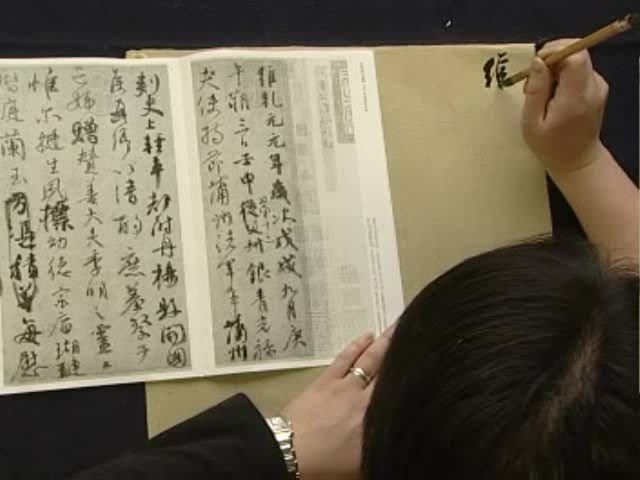 維
維乾元元年歲次戊戌九月庚
午朔三日壬申第十三從父叔銀青光祿
夫使持節蒲州諸軍事蒲州
刺史上輕車都尉丹楊縣開國
侯真卿以清酌庶羞祭于
亡姪贈贊善大夫季明之靈曰
惟爾挺生夙標幼德宗廟瑚璉
階庭蘭玉方憑積善每慰